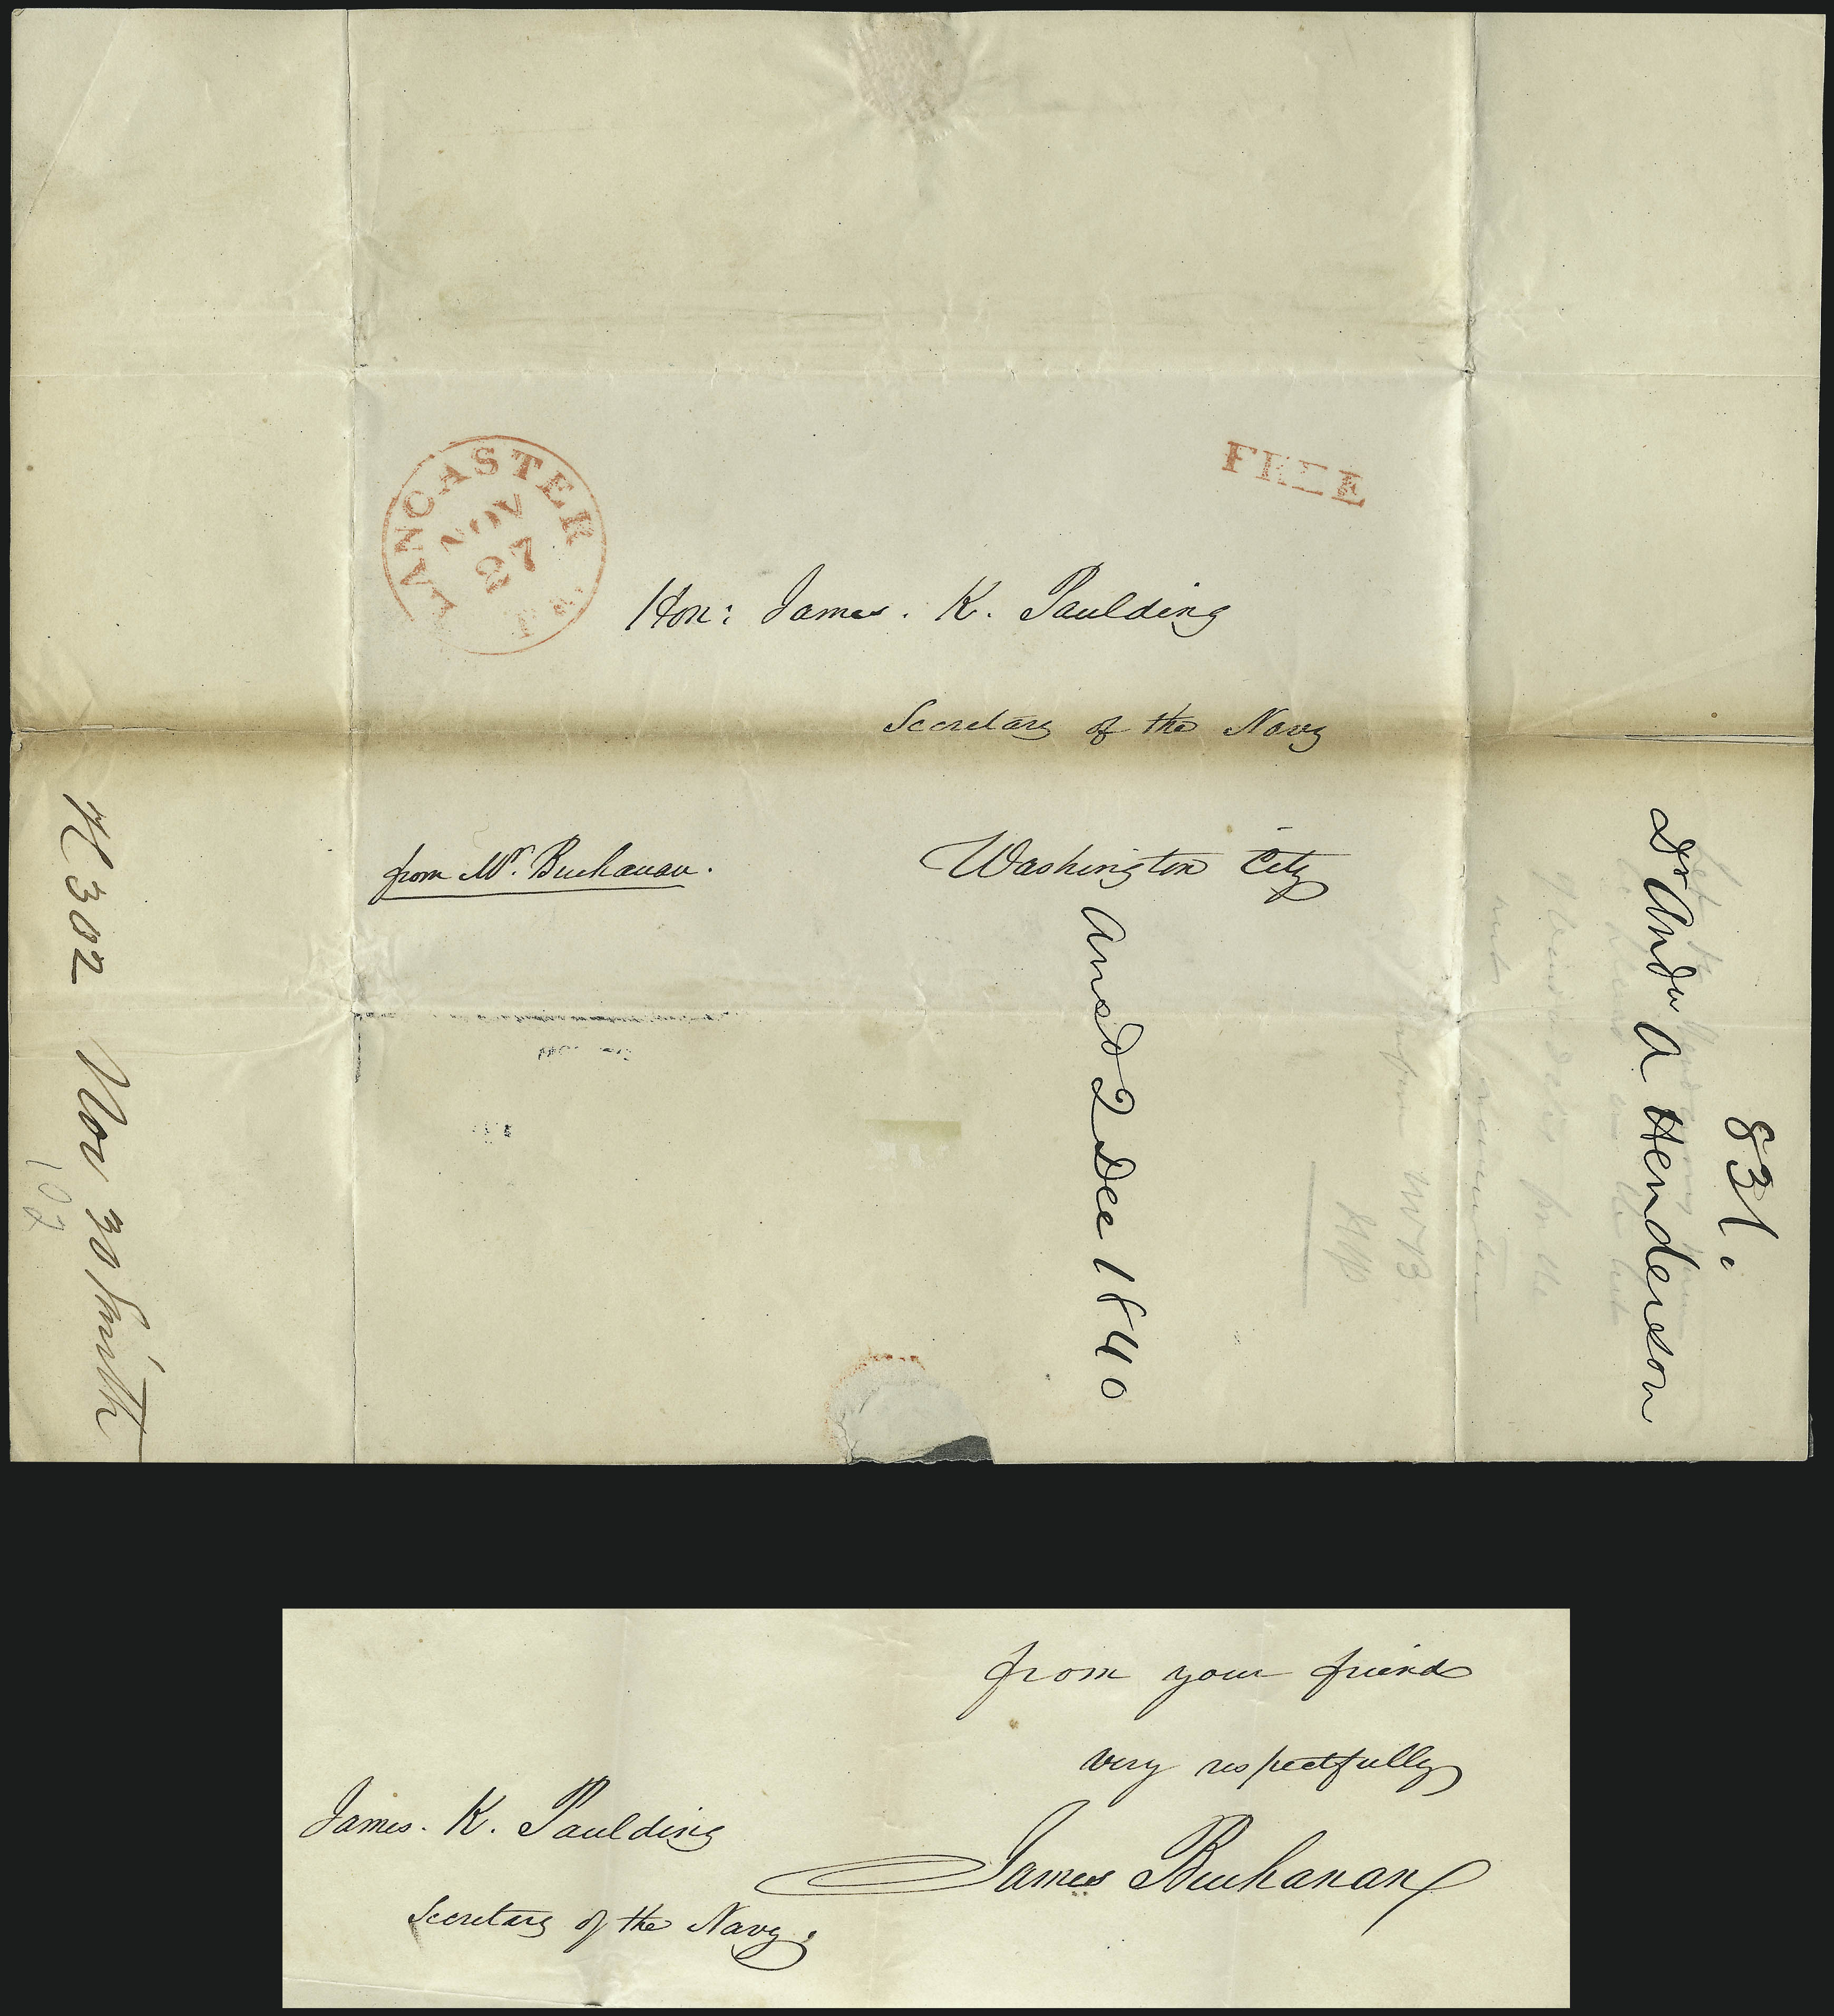 LANCASTER Pa
NOV
27
FREE
Hon: James. K. Paulding
Secretary of the Navy
from Mr. Buchanan.
Washington City
Ansd 2 Dec 1840
H 302 Nov 30 Smith
102
831.
Dr Andw A Henderson
from your friend
very respectfully
James Buchanan
James. K. Paulding
Secretary of the Navy.